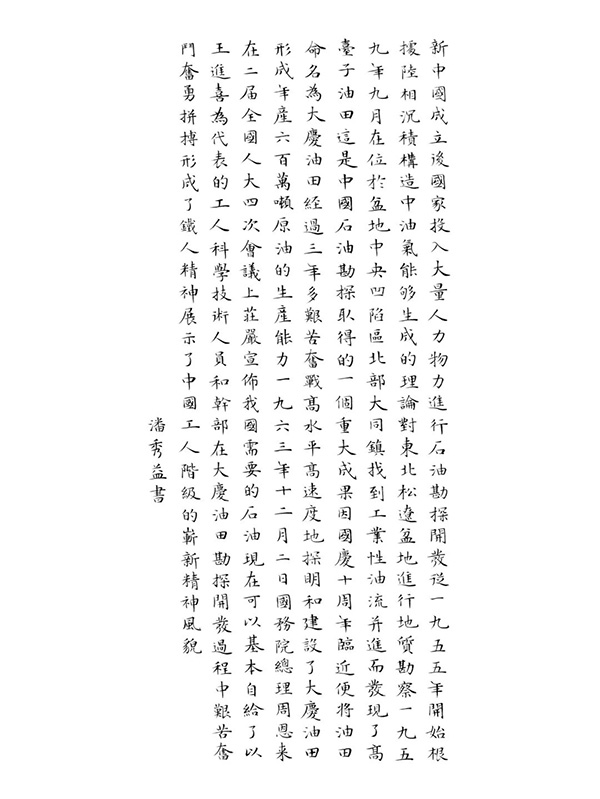 新中國成立後國家投入大量人力物力進行石油勘探開發從一九五五年開始根
據陸相沉積構造中油氣能够生成的理論對東北松遼盆地進行地質勘察一九五
九年九月在位於盆地中央凹陷區北部大同鎮找到工業性油流并進而發現了高
臺子油田這是中國石油勘探取得的一個重大成果因國慶十周年臨近便將油田
命名為大慶油田經過三年多艱苦奮戰高水平高速度地探明和建設了大慶油田
形成年産六百萬噸原油的生産能力一九六三年十二月二日國務院總理周恩来
在二届全國人大四次會議上莊嚴宣佈我國需要的石油現在可以基本自給了以
王進喜為代表的工人科學技術人員和幹部在大慶油田勘探開發過程中艱苦奮
鬥奮勇拼搏形成了鐵人精神展示了中國工人階級的嶄新精神風貌
潘秀益書